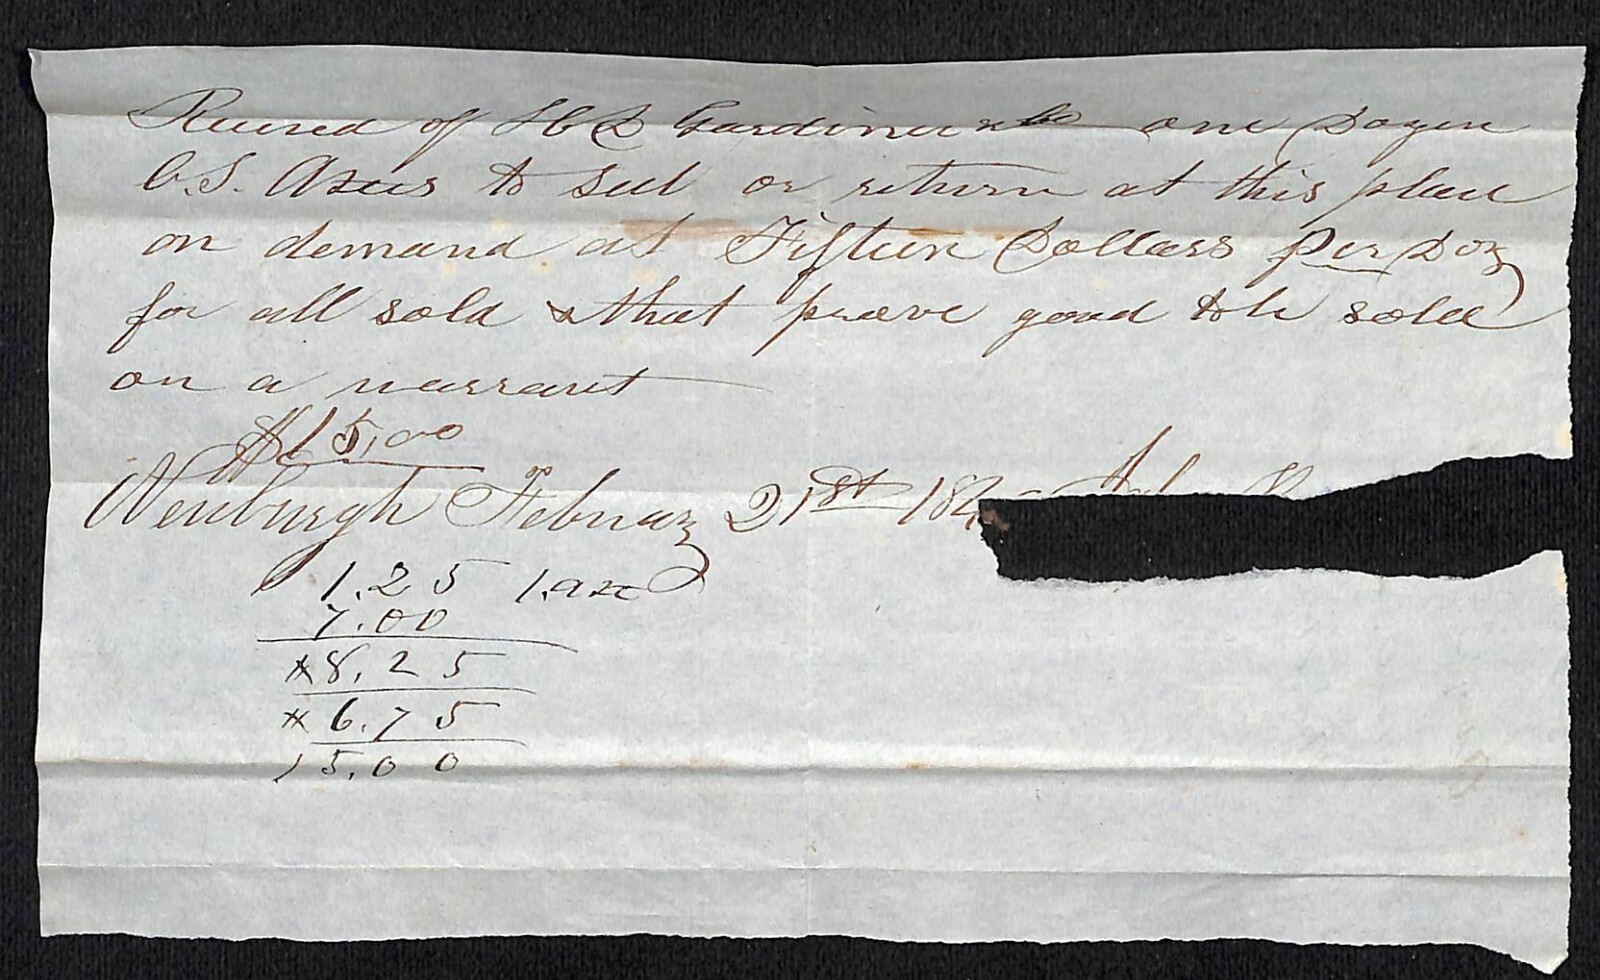 Received of H & D Gardiner & Co one Dozen
C.S. Axes to sell or return at this place
on demand at Fifteen Dollars per Doz
for all sold & that prove good to be sold
on a warrant
$15,00
Newburgh February 21st 184
1.25 1.axe
7.00
8,25
6.75
15,00